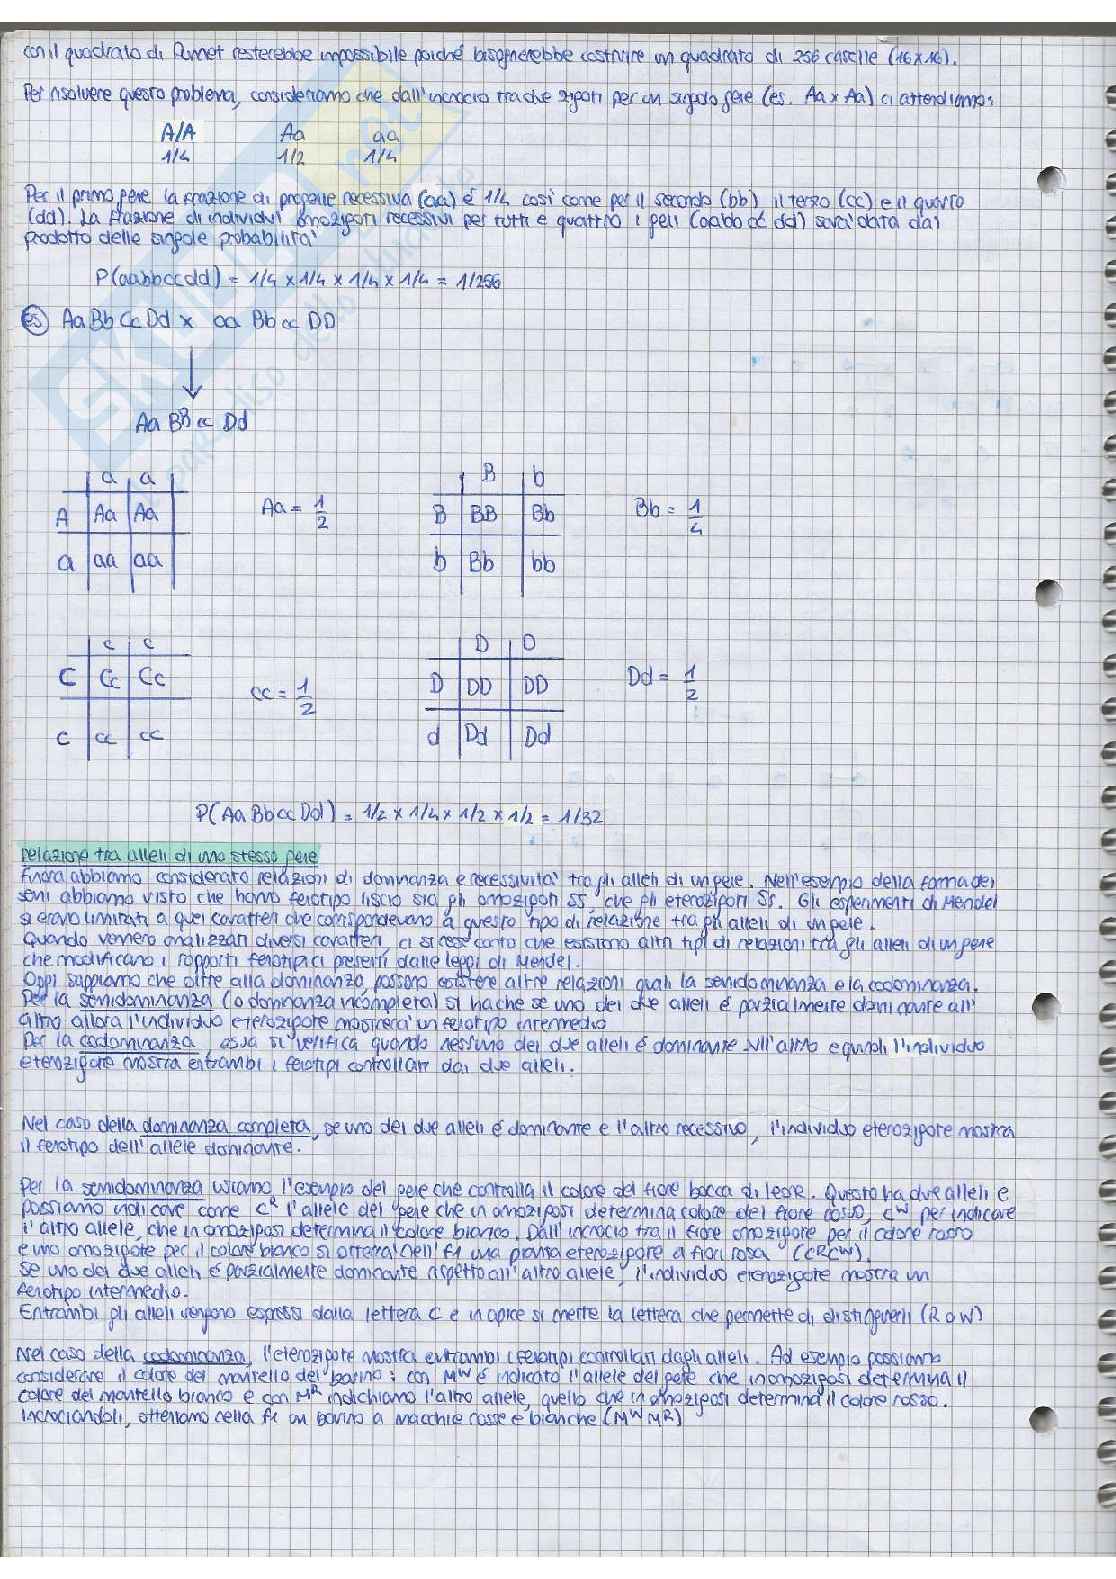 con il quadrato di Punnet resterebbe impossibile poiché bisognerebbe costruire un quadrato di 256 caselle (16x16).
Per risolvere questo problema, consideriamo che dall'incrocio tra che zigoti per un singolo gene (es. Aa x Aa) ci attendiamo:
A/A Aa aa
1/4 1/2 1/4
Per il primo gene la frazione di progenie recessiva (aa) é 1/4 così come per il secondo (bb) il terzo (cc) e il quarto
(dd). La frazione di individui omozigoti recessivi per tutti e quattro i geni (aabb cc dd) sara' data dal
prodotto delle singole probabilità
P(aabbccdd) = 1/4 x 1/4 x 1/4 x 1/4 = 1/256
es) Aa Bb Cc Dd x aa Bb cc DD
Aa BB cc Dd
a a
A Aa Aa
a aa aa
Aa = 1/2
B b
B BB Bb
b Bb bb
Bb = 1/4
c c
C Cc Cc
c cc cc
cc = 1/2
D D
D DD DD
d Dd Dd
Dd = 1/2
P(AaBbccDd) = 1/2 x 1/4 x 1/2 x 1/2 = 1/32
relazione tra alleli di uno stesso gene
Finora abbiamo considerato relazioni di dominanza e recessivita' tra gli alleli di un gene. Nell'esempio della forma dei
semi abbiamo visto che hanno fenotipo liscio sia gli omozigoti SS che gli eterozigoti Ss. Gli esperimenti di Mendel
si erano limitati a quei caratteri che corrispondevano a questo tipo di relazione tra gli alleli di un gene.
Quando vennero analizzati diversi caratteri, ci si rese conto che esistono altri tipi di relazioni tra gli alleli di un gene
che modificano i rapporti fenotipici previsti dalle leggi di Mendel.
Oggi sappiamo che oltre alla dominanza, possono esistere altre relazioni quali la semidominanza e la codominanza.
Per la semidominanza (o dominanza incompleta) si ha che se uno dei due alleli é parzialmente dominante all'
altro allora l'individuo eterozigote mostrerà un fenotipo intermedio
Per la codominanza si verifica quando nessuno dei due alleli é dominante sull'altro e quindi l'individuo
eterozigote mostra entrambi i fenotipi controllati dai due alleli.
Nel caso della dominanza completa, se uno dei due alleli é dominante e l'altro recessivo, l'individuo eterozigote mostra
il fenotipo dell'allele dominante.
Per la semidominanza usiamo l'esempio del gene che controlla il colore del fiore bocca di leone. Questo ha due alleli e
possiamo indicare come Cᴿ l'allele del gene che in omozigosi determina colore del fiore rosso, Cᵂ per indicare
l'altro allele, che in omozigosi determina il colore bianco. Dall'incrocio tra il fiore omozigote per il colore rosso
e uno omozigote per il colore bianco si otterra' nell'F1 una pianta eterozigote a fiori rosa (CRCW).
Se uno dei due alleli é parzialmente dominante rispetto all'altro allele, l'individuo eterozigote mostra un
fenotipo intermedio.
Entrambi gli alleli vengono espressi dalla lettera C e in apice si mette la lettera che permette di distinguerli (R o W)
Nel caso della codominanza, l'eterozigote mostra entrambi i fenotipi controllati dagli alleli. Ad esempio possiamo
considerare il colore del mantello del bovino: con Mᵂ é indicato l'allele del gene che in omozigosi determina il
colore del mantello bianco e con Mᴿ indichiamo l'altro allele, quello che in omozigosi determina il colore rosso.
Incrociandoli, otteniamo nella F1 un bovino a macchie rosse e bianche (Mᵂ Mᴿ)